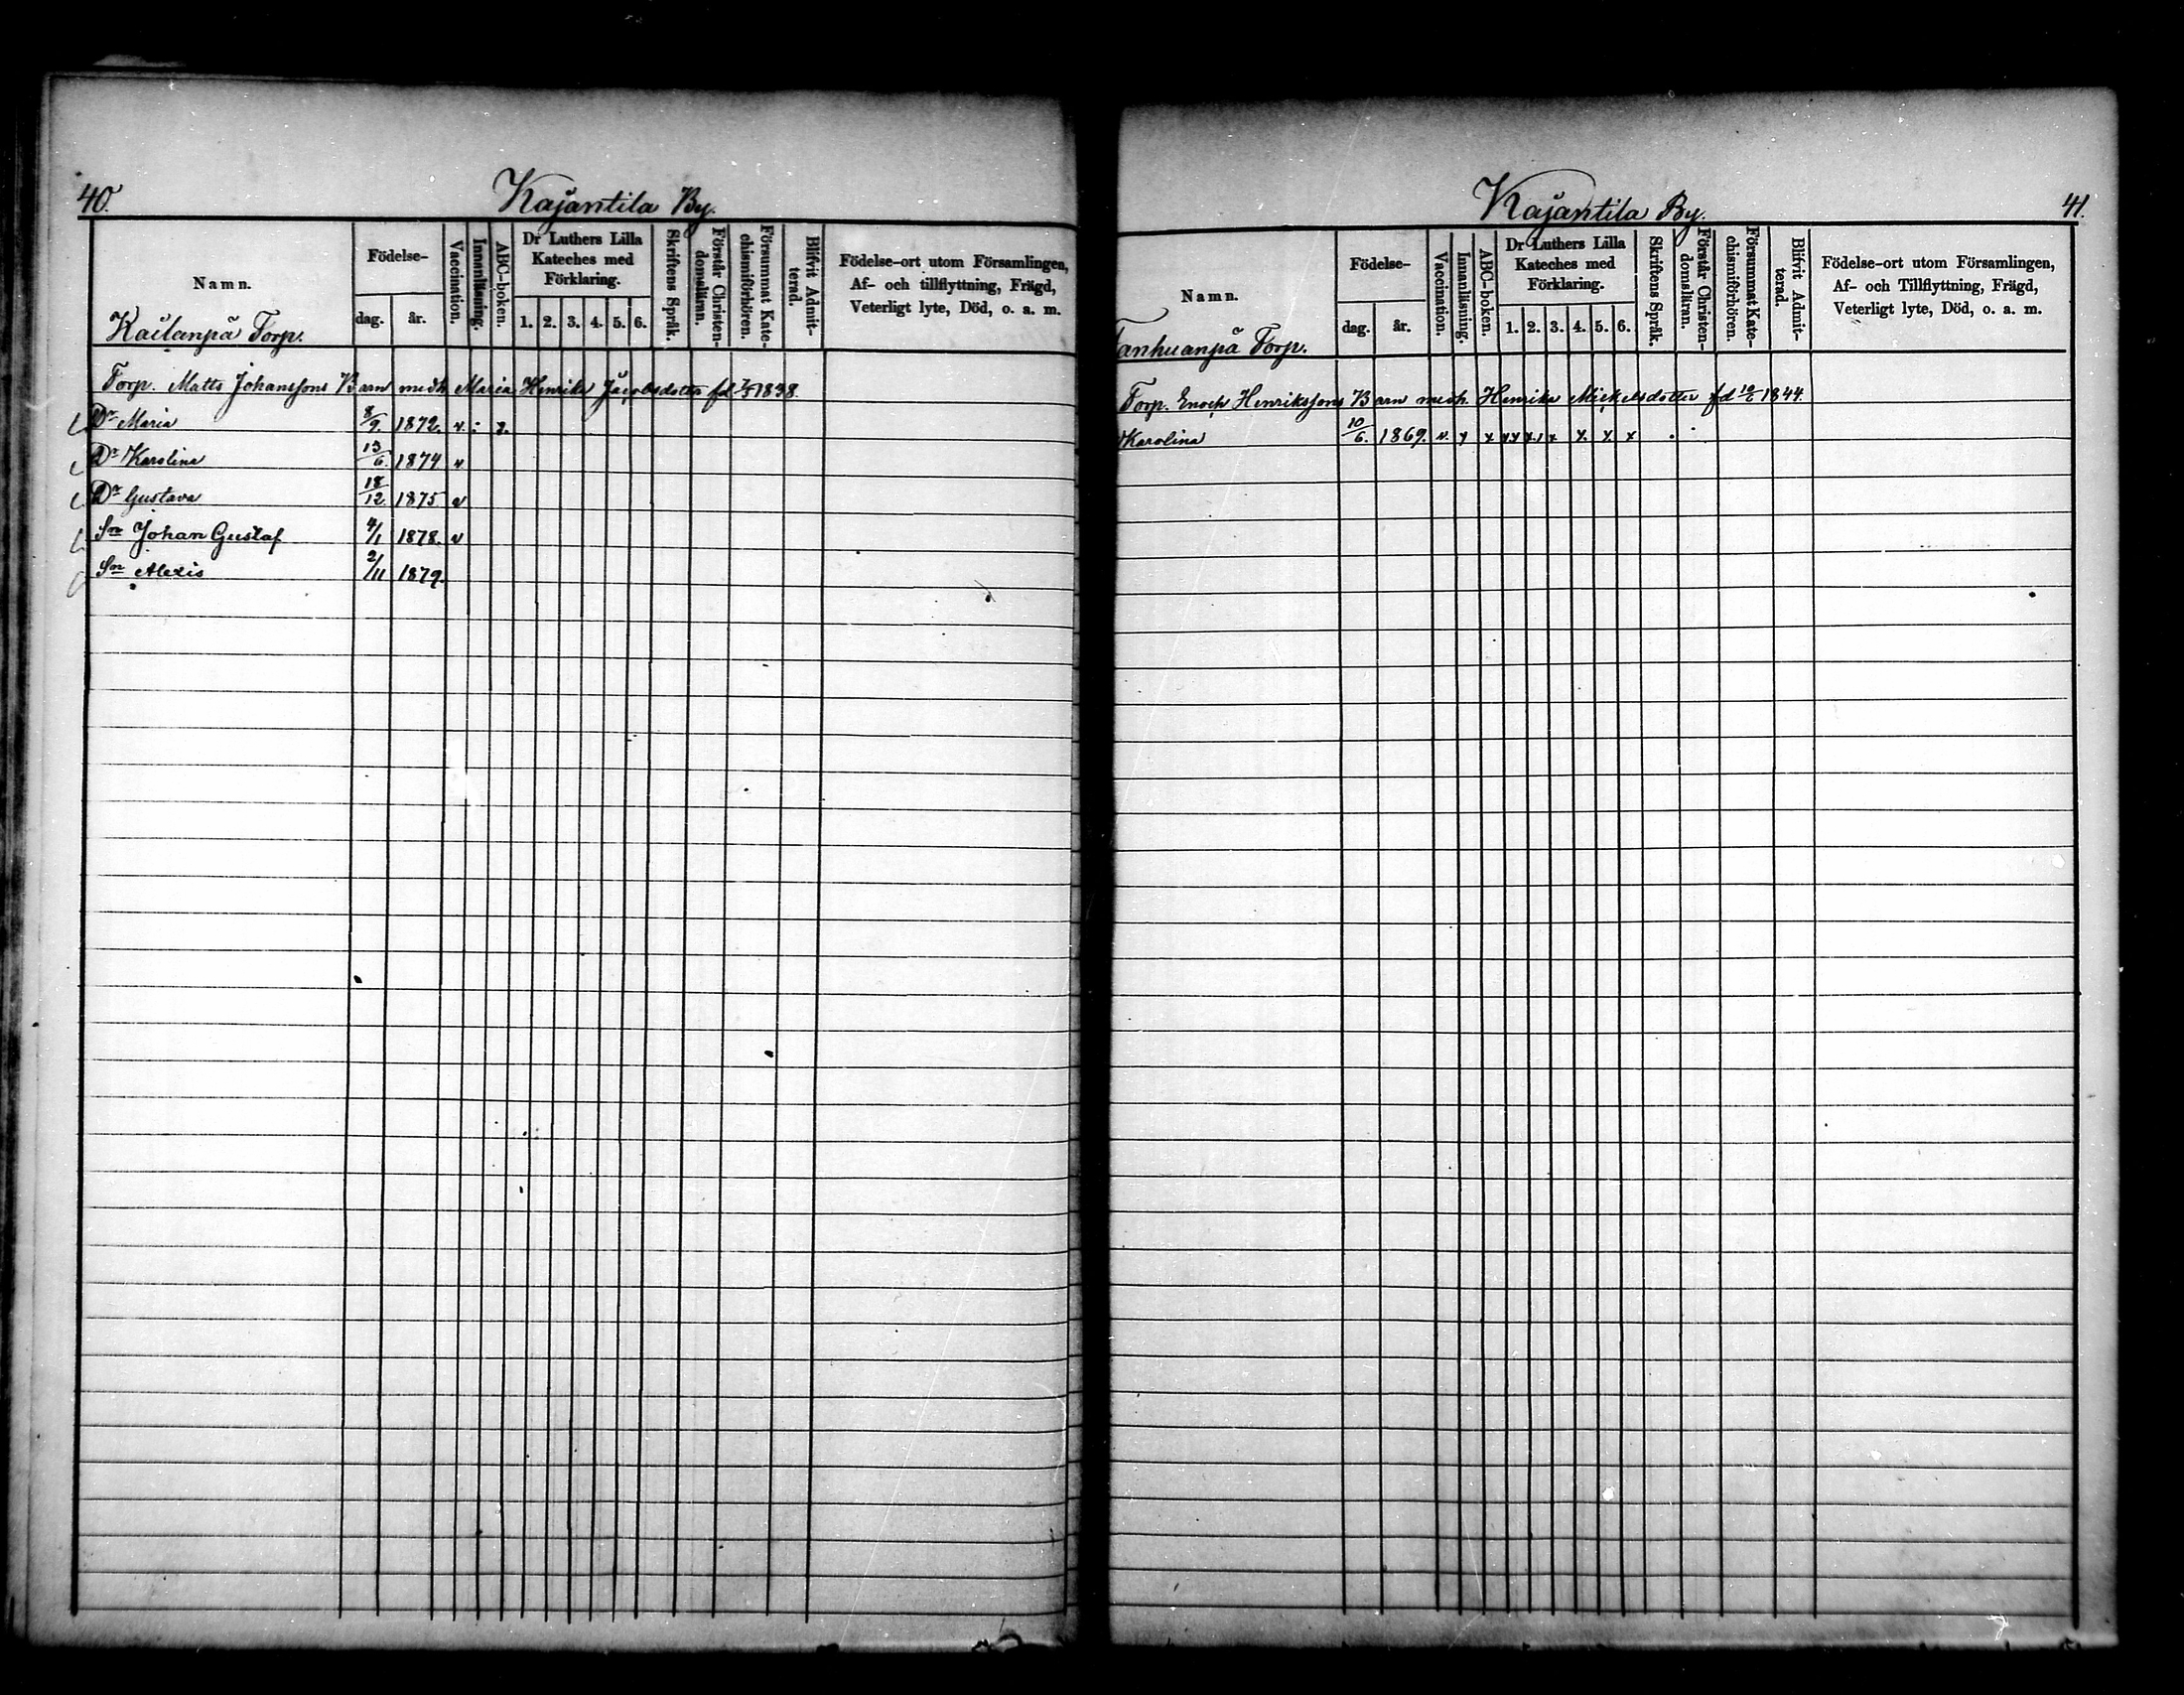 40.
Kajantila By.
Namn.
Födelse-
dag.
år.
Vaccination.
Innanläsning.
ABC-boken.
Dr Luthers Lilla
Kateches med
Förklaring.
1. 2. 3. 4. 5. 6.
Skriftens Språk.
Förstår Christen-
domsläran.
Försummat Kate-
chismiförhören.
Blifvit Admit-
terad.
Födelse-ort utom Församlingen,
Af- och tillflyttning, Frägd,
Veterligt lyte, Död, o. a. m.
Torp.
Torp. Matts Johanssons Barn med Maria Henrika Jacobsdotter fd 1838.
Dr Maria 8/9. 1872. v.
Dr Karolina 13/6. 1874 v
Dr Gustava 18/12. 1875 v
Sn Johan Gustaf 4/1 1878. v
Sn Alexis 2/11 1879.
Kajantila By.
41.
Namn.
Födelse-
dag.
år.
Vaccination.
Innanläsning.
ABC-boken.
Dr Luthers Lilla
Kateches med
Förklaring.
1. 2. 3. 4. 5. 6.
Skriftens Språk.
Förstår Christen-
domsläran.
Försummat Kate-
chismiförhören.
Blifvit Admit-
terad.
Födelse-ort utom Församlingen,
Af- och Tillflyttning, Frägd,
Veterligt lyte, Död, o. a. m.
anhuanpä Torp.
Torp. Enoch Henrikssons Barn med Henrika Mickelsdotter fd 1844.
Karolina 10/6. 1869. v. x x x x x x x x x